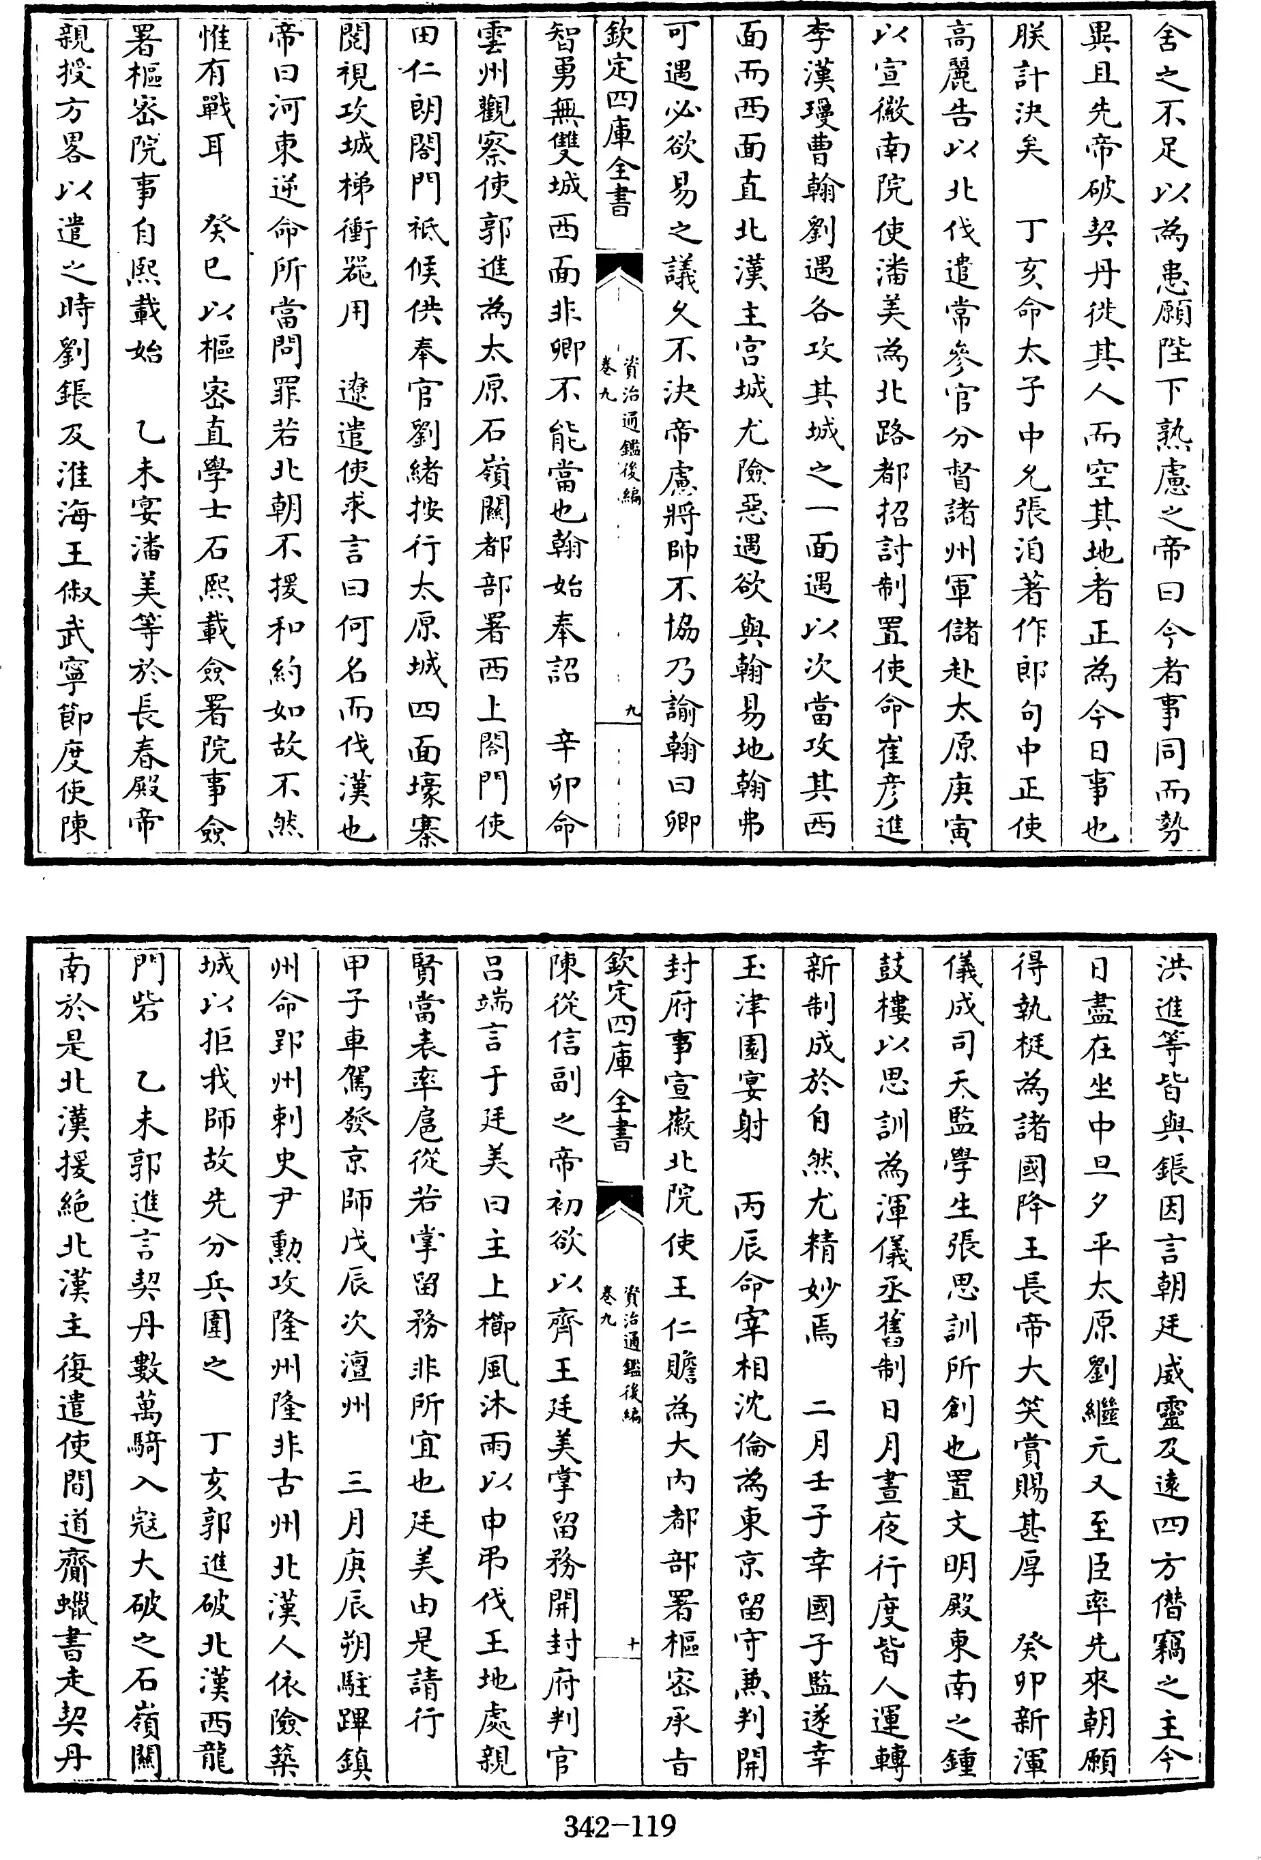 舍之不足以為患願陛下熟慮之帝曰今者事同而勢
異且先帝破契丹徙其人而空其地者正為今日事也
朕計決矣 丁亥命太子中允張洎著作郎句中正使
高麗告以北伐遣常參官分督諸州軍儲赴太原庚寅
以宣徽南院使潘美為北路都招討制置使命崔彥進
李漢瓊曹翰劉遇各攻其城之一面遇以次當攻其西
面而西面直北漢主宮城尤險惡遇欲與翰易地翰弗
可遇必欲易之議久不決帝慮將帥不協乃諭翰曰卿
欽定四庫全書
資治通鑑後編
卷九
九
智勇無雙城西面非卿不能當也翰始奉詔 辛卯命
雲州觀察使郭進為太原石嶺關都部署西上閤門使
田仁朗閤門祗候供奉官劉緒按行太原城四面壕寨
閱視攻城梯衝器用 遼遣使求言曰何名而伐漢也
帝曰河東逆命所當問罪若北朝不援和約如故不然
惟有戰耳 癸巳以樞密直學士石熙載僉署院事僉
署樞密院事自熙載始 乙未宴潘美等於長春殿帝
親授方畧以遣之時劉鋹及淮海王俶武寧節度使陳
洪進等皆與鋹因言朝廷威靈及遠四方僭竊之主今
日盡在坐中旦夕平太原劉繼元又至臣率先來朝願
得執梃為諸國降王長帝大笑賞賜甚厚 癸卯新渾
儀成司天監學生張思訓所創也置文明殿東南之鍾
鼓樓以思訓為渾儀丞舊制日月晝夜行度皆人運轉
新制成於自然尤精妙焉 二月壬子幸國子監遂幸
玉津園宴射 丙辰命宰相沈倫為東京留守兼判開
封府事宣徽北院使王仁贍為大內都部署樞密承旨
欽定四庫全書
資治通鑑後編
卷九
十
陳從信副之帝初欲以齊王廷美掌留務開封府判官
呂端言于廷美曰主上櫛風沐雨以申弔伐王地處親
賢當表率扈從若掌留務非所宜也廷美由是請行
甲子車駕發京師戊辰次澶州 三月庚辰朔駐蹕鎮
州命郢州刺史尹勳攻隆州隆非古州北漢人依險築
城以拒我師故先分兵圍之 丁亥郭進破北漢西龍
門砦 乙未郭進言契丹數萬騎入寇大破之石嶺關
南於是北漢援絕北漢主復遣使間道齎蠟書走契丹
342-119